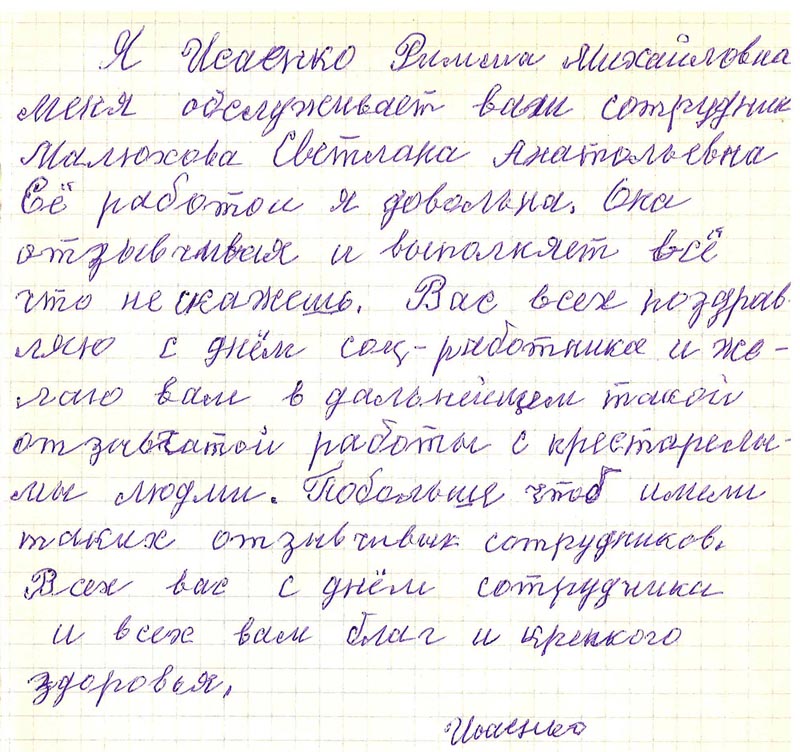 Я Исаенко Римма Михайловна
меня обслуживает ваш сотрудник
Малюхова Светлана Анатольевна
Её работои я довольна. Она
отзывчивая и выполняет всё
что не скажешь. Вас всех поздрав-
ляю с днём соц-работника и же-
лаю вам в дальнейшем такой
отзывчатой работы с крестарелы-
мы людми. Побольше чтоб имели
таких отзывчивых сотрудников.
Всех вас с днём сотрудники
и всех вам благ и крепкого
здоровья.
Исаенко